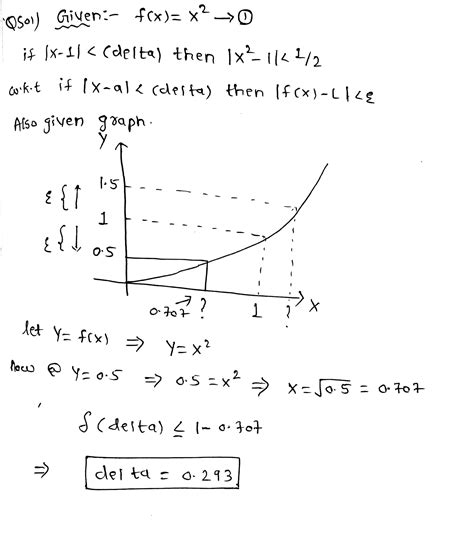 Qso1) Given:- f(x) = x² → ①
if |x-1| < (delta) then |x²-1| < 1/2
w.k.t if |x-a| < (delta) then |f(x)-L| < ε
Also given graph.
Y
1.5
ε {↑
1
ε {↓
0.5
0.707 → ? 1 ? X
let Y = f(x) ⇒ Y = x²
Now @ Y = 0.5 ⇒ 0.5 = x² ⇒ X = √0.5 = 0.707
δ (delta) ≤ 1 - 0.707
⇒ delta = 0.293